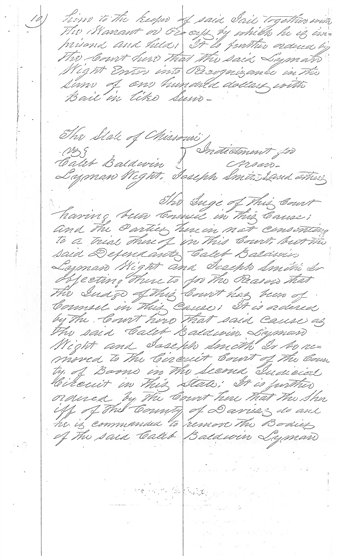 10)
him to the keeper of said Jail together with
the Warrant or Process by which he is im-
prisoned and held; It is further ordered by
the Court here that the said Lyman
Wight Enter into Recognizance in the
Sum of one hundred dollars with
Bail in like Sum—
The State of Missouri
vs
Indictment for
Caleb Baldwin
Arson—
Lyman Wight, Joseph Smith and others
The Judge of this Court
having been Counsel in this Cause;
and the Parties herein not consenting
to a trial thereof in this Court, but the
said Defendants Caleb Baldwin
Lyman Wight and Joseph Smith Jr
objecting thereto for the Reason that
the Judge of this Court has been of
Counsel in this Cause; It is ordered
by the Court here that said Cause as
the said Caleb Baldwin Lyman
Wight and Joseph Smith Jr be re-
moved to the Circuit Court of the Coun-
ty of Boone in the Second Judicial
Circuit in this State; It is further
ordered by the Court here that the Sher
iff of the County of Daviess do and
he is commanded to remove the Bodies
of the said Caleb Baldwin Lyman